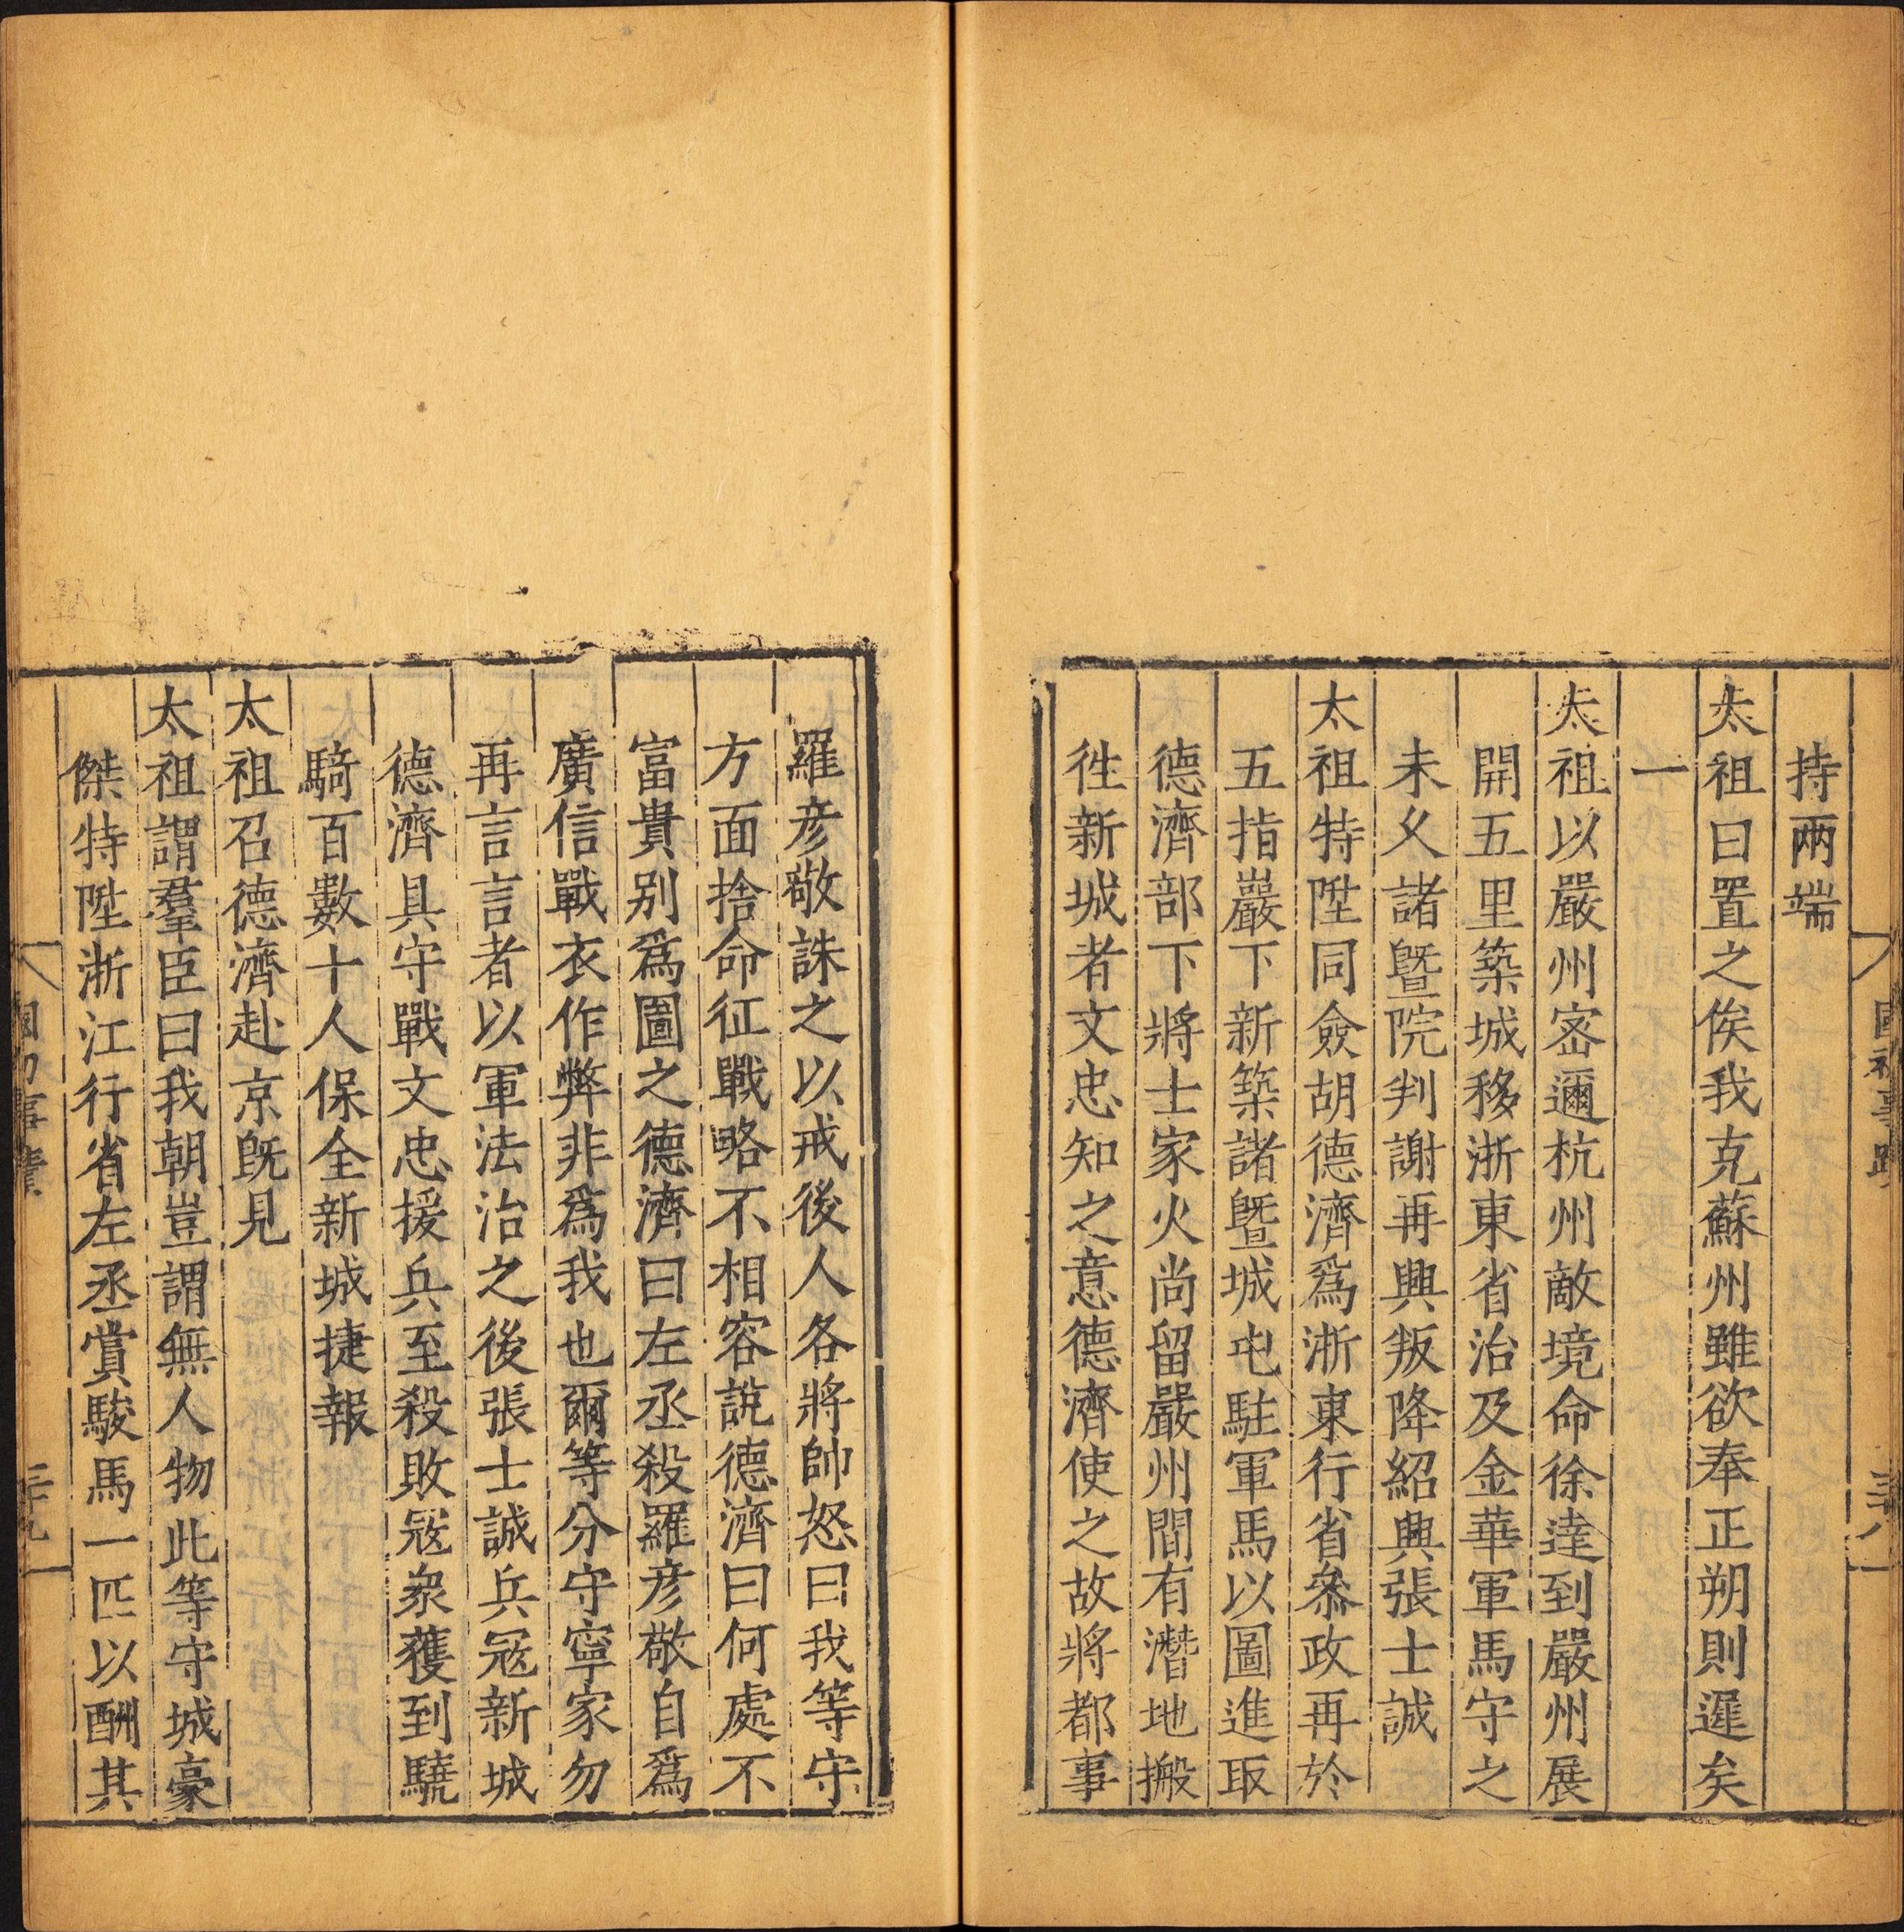 國初事蹟
三十八
持兩端
太祖曰置之俟我克蘇州雖欲奉正朔則遲矣
一
太祖以嚴州密邇杭州敵境命徐達到嚴州展
開五里築城移浙東省治及金華軍馬守之
未久諸暨院判謝再興叛降紹興張士誠
太祖特陞同僉胡德濟爲浙東行省叅政再於
五指巖下新築諸暨城屯駐軍馬以圖進取
德濟部下將士家火尚留嚴州間有潛地搬
徃新城者文忠知之意德濟使之故將都事
羅彦敬誅之以戒後人各將帥怒曰我等守
方面捨命征戰略不相容說德濟曰何處不
富貴别爲圖之德濟曰左丞殺羅彦敬自爲
廣信戰衣作弊非爲我也爾等分守寧家勿
再言言者以軍法治之後張士誠兵寇新城
德濟具守戰文忠援兵至殺敗寇衆獲到驍
騎百數十人保全新城捷報
太祖召德濟赴京旣見
太祖謂羣臣曰我朝豈謂無人物此等守城豪
傑特陞浙江行省左丞賞駿馬一匹以酬其
國初事蹟
三十九